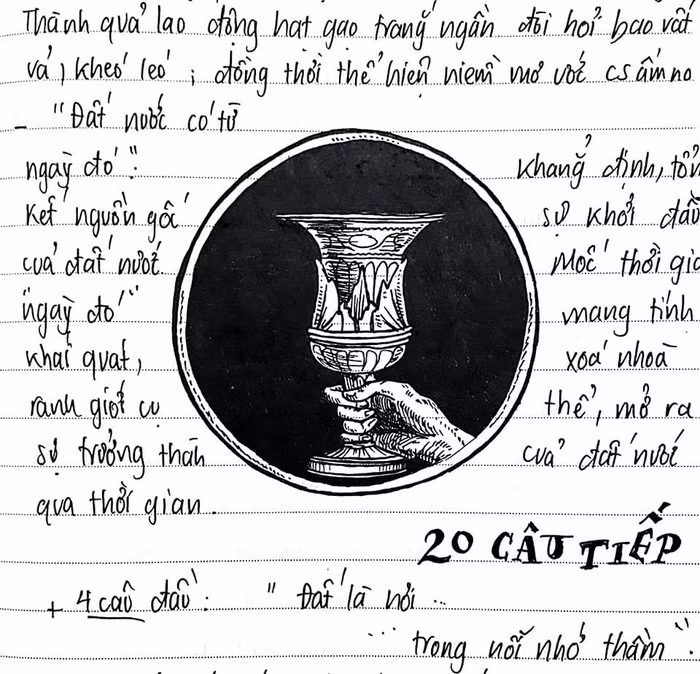 Thành quả lao động hạt gạo trắng ngần đòi hỏi bao vất
vả, khéo léo; đồng thời thể hiện niềm mơ ước cs ấm no
- "Đất nước có từ
ngày đó":
Khẳng định, tổn
kết nguồn gốc
sự khởi đầu
của đất nước.
Mốc thời gia
"ngày đó"
mang tính
khái quát,
xoá nhoà
ranh giới cụ
thể, mở ra
sự trưởng thàh
của đất nước
qua thời gian.
20 CÂU TIẾP
+ 4 câu đầu: " Đất là nơi ...
... trong nỗi nhớ thầm":